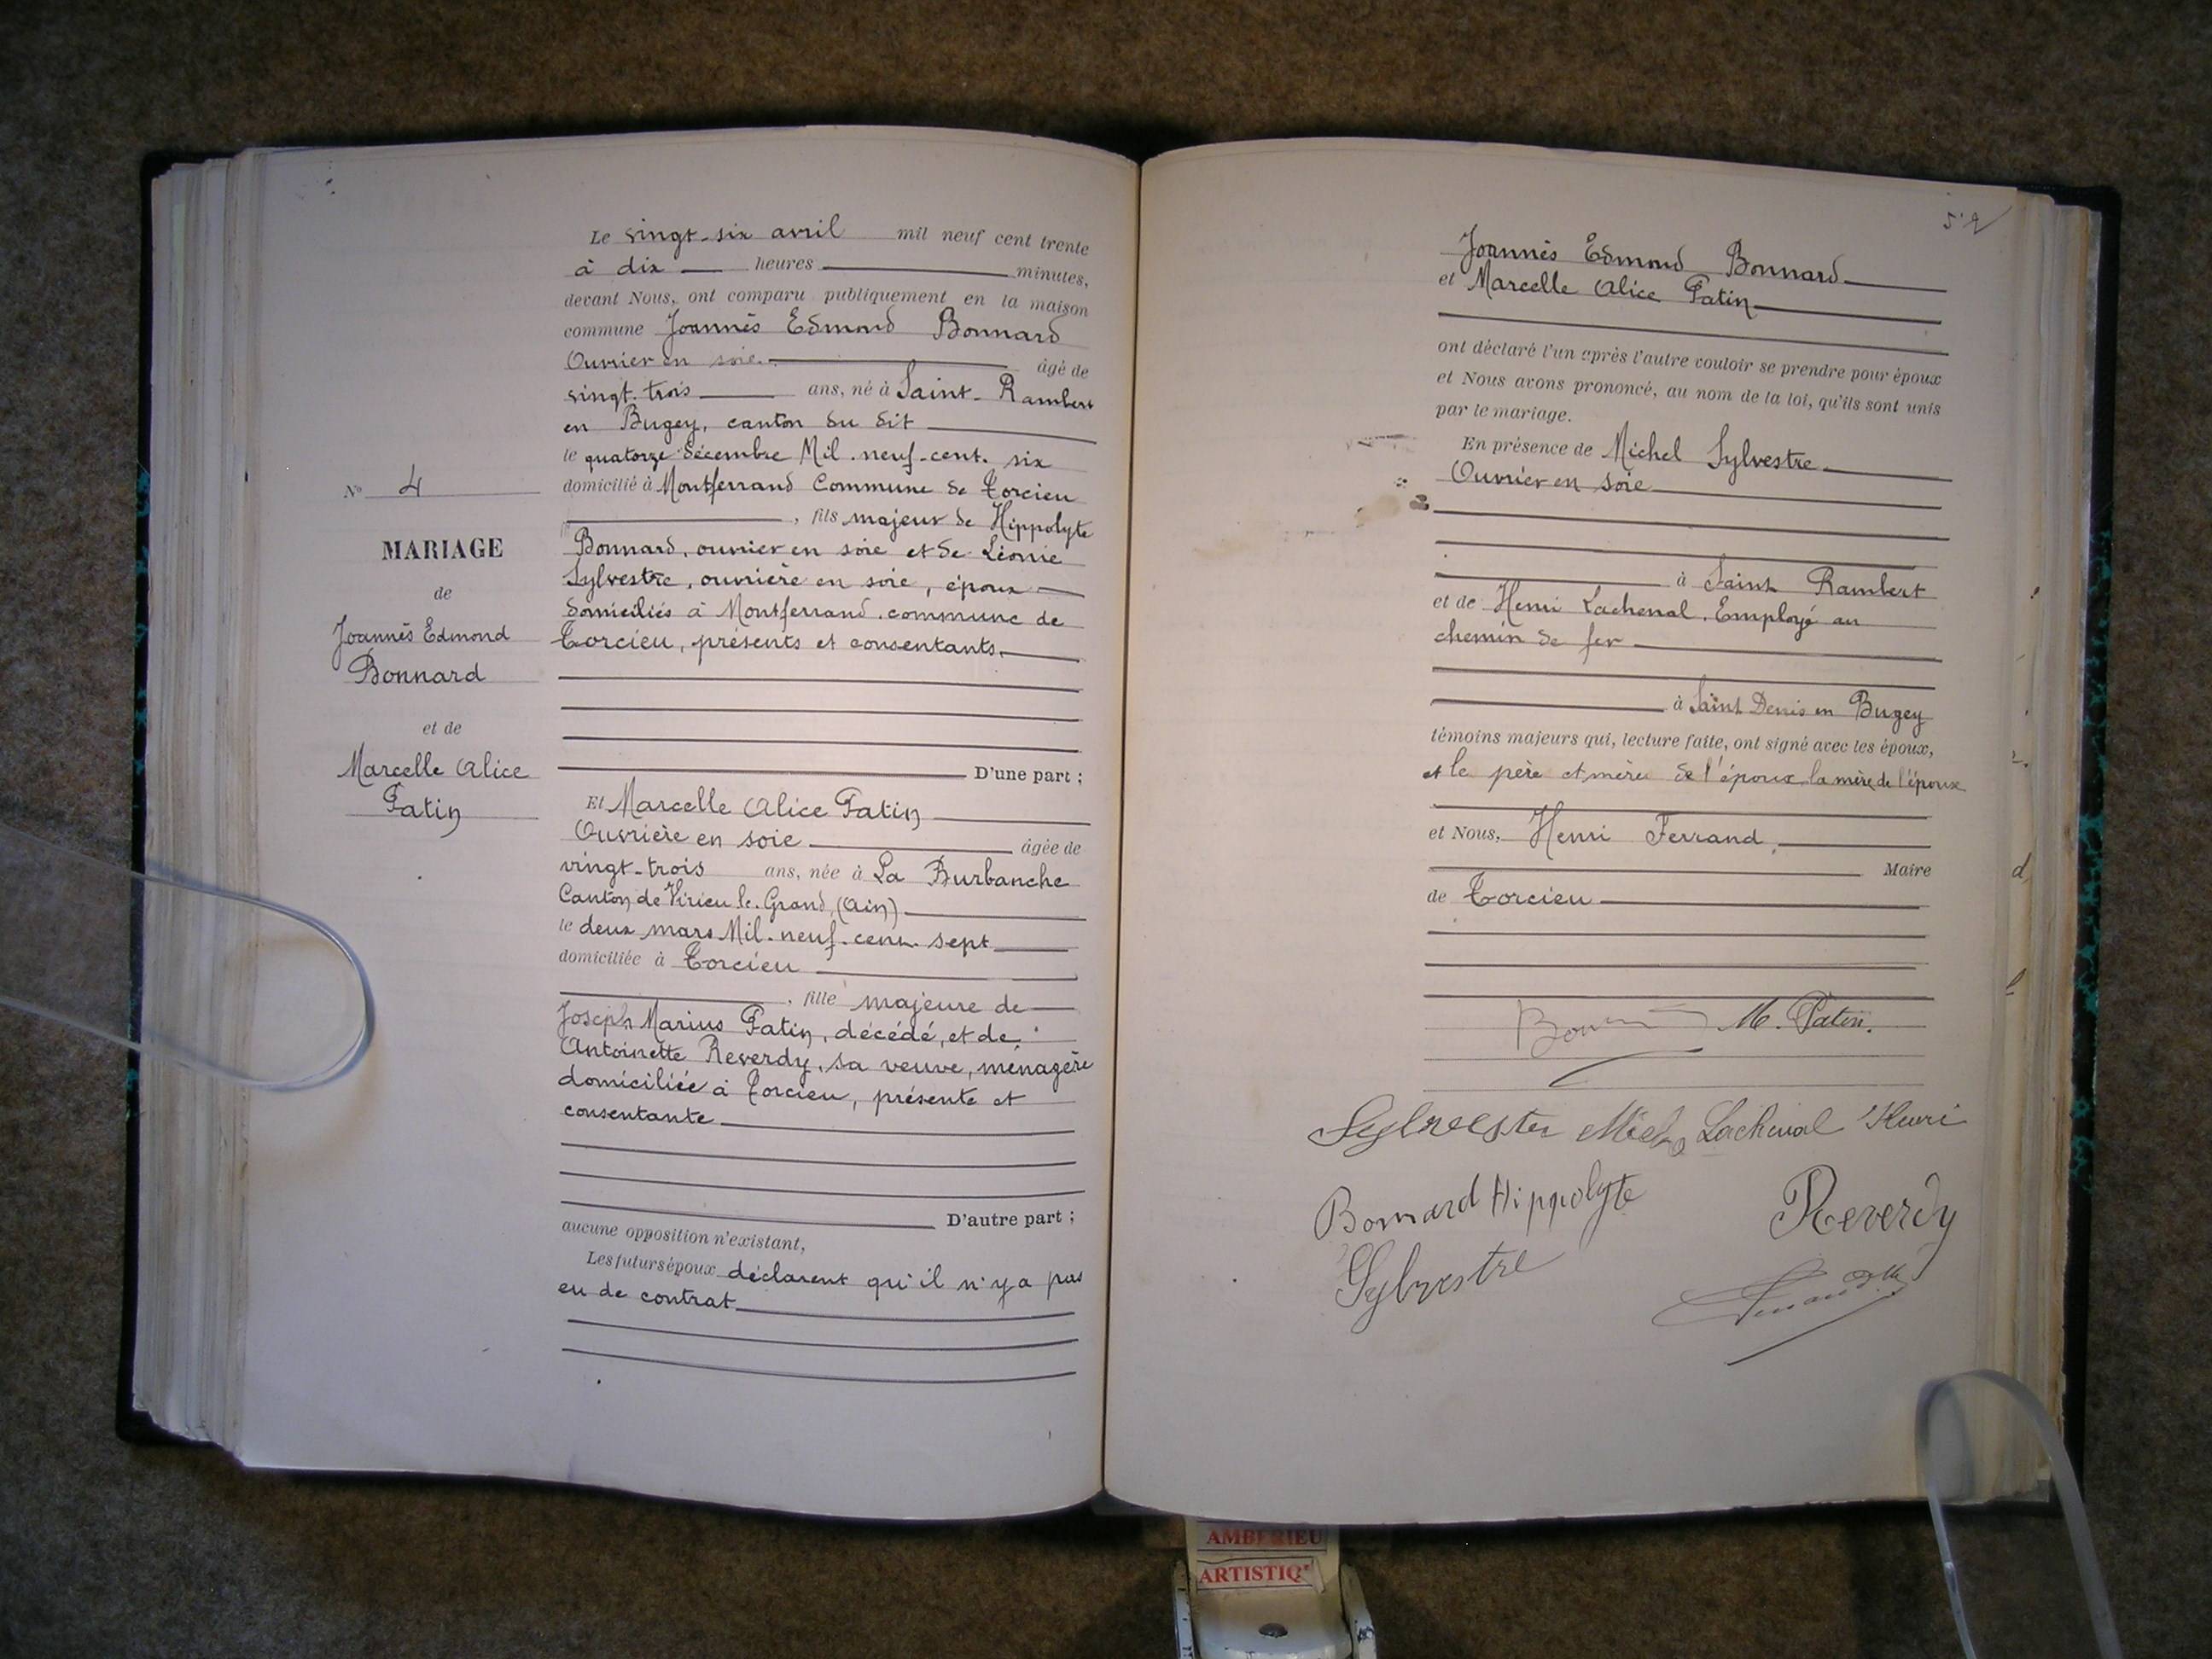 N° 4
MARIAGE
de
Joannès Edmond
Bonnard
et de
Marcelle Alice
Patin
Le vingt-six avril mil neuf cent trente
à dix heures minutes,
devant Nous, ont comparu publiquement en la maison
commune Joannès Edmond Bonnard
Ouvrier en soie. âgé de
vingt-trois ans, né à Saint-Rambert
en Bugey, canton du dit
le quatorze décembre Mil-neuf-cent-six
domicilié à Montferrand Commune de Torcieu
, fils majeur de Hippolyte
Bonnard, ouvrier en soie et de Léonie
Sylvestre, ouvrière en soie, époux
domiciliés à Montferrand, commune de
Torcieu, présents et consentants.
D'une part ;
Et Marcelle Alice Patin
Ouvrière en soie âgée de
vingt-trois ans, née à La Burbanche
Canton de Virieu le Grand, (Ain)
le deux mars Mil-neuf-cent-sept
domiciliée à Torcieu
, fille majeure de
Joseph Marius Patin, décédé, et de
Antoinette Reverdy, sa veuve, ménagère
domiciliée à Torcieu, présente et
consentante
D'autre part ;
aucune opposition n'existant,
Les futurs époux déclarent qu'il n'y a pas
eu de contrat
52
Joannès Edmond Bonnard
et Marcelle Alice Patin
ont déclaré l'un après l'autre vouloir se prendre pour époux
et Nous avons prononcé, au nom de la loi, qu'ils sont unis
par le mariage.
En présence de Michel Sylvestre
Ouvrier en soie
à Saint Rambert
et de Henri Lachenal, Employé au
chemin de fer
à Saint Denis en Bugey
témoins majeurs qui, lecture faite, ont signé avec les époux,
et le père et mère de l'époux la mère de l'épouse
et Nous, Henri Ferrand,
Maire
de Torcieu
M. Patin.
Sylvestre Lachenal Henri
Bonnard Hippolyte Reverdy
Sylvestre
AMBERIEU
ARTISTIQ